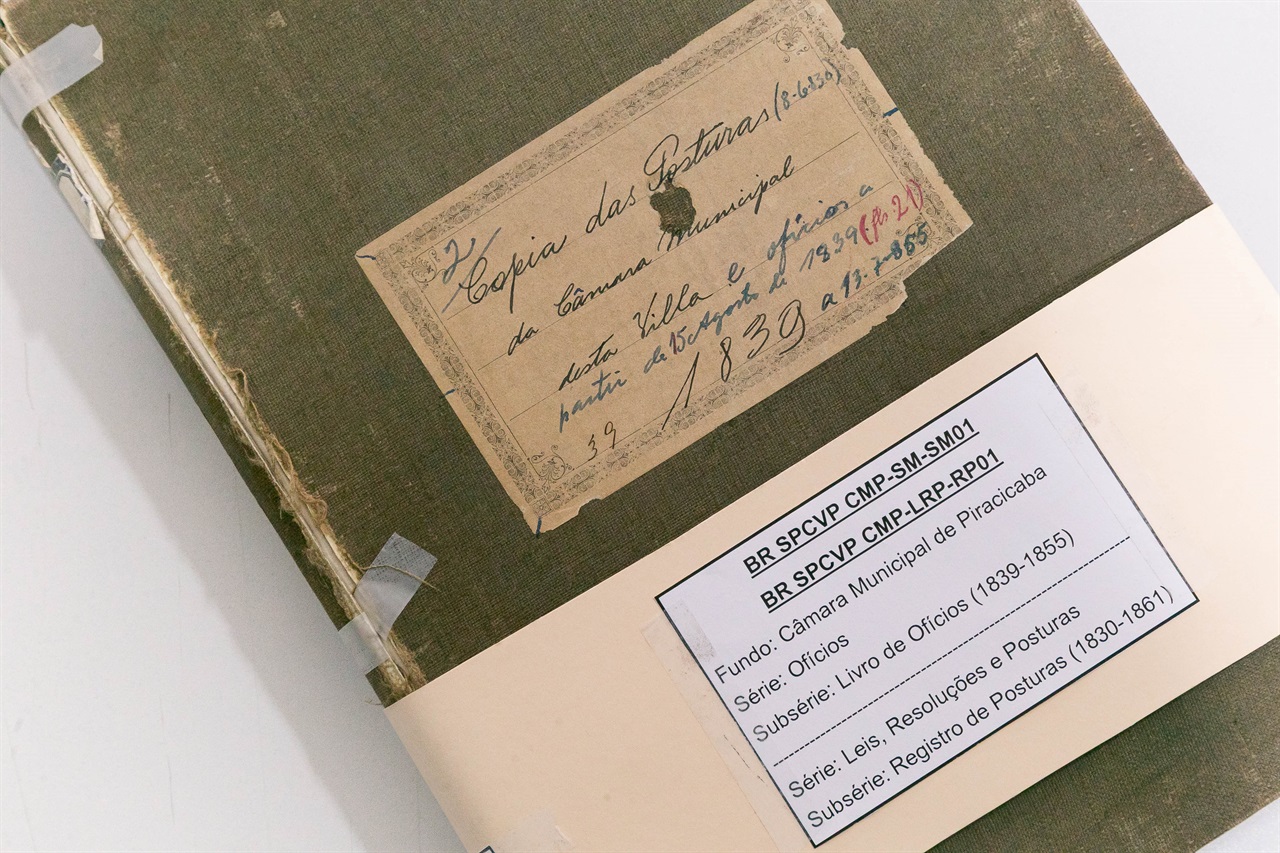 2
Copia das Posturas (8-6-830)
da Câmara Municipal
desta Villa e ofícios a
partir de 15 Agosto de 1839 (fls. 21)
1839 a 13-7-855
39
BR SPCVP CMP-SM-SM01
BR SPCVP CMP-LRP-RP01
Fundo: Câmara Municipal de Piracicaba
Série: Ofícios
Subsérie: Livro de Ofícios (1839-1855)
--------------------------------------------------
Série: Leis, Resoluções e Posturas
Subsérie: Registro de Posturas (1830-1861)